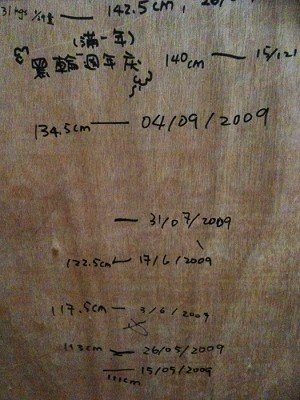 142.5cm
(滿一年)
黑輪週年庆
140cm — 15/12/
134.5cm — 04/09/2009
— 31/07/2009
122.5cm — 17/6/2009
117.5cm — 3/6/2009
113cm — 26/05/2009
— 15/05/2009
111cm